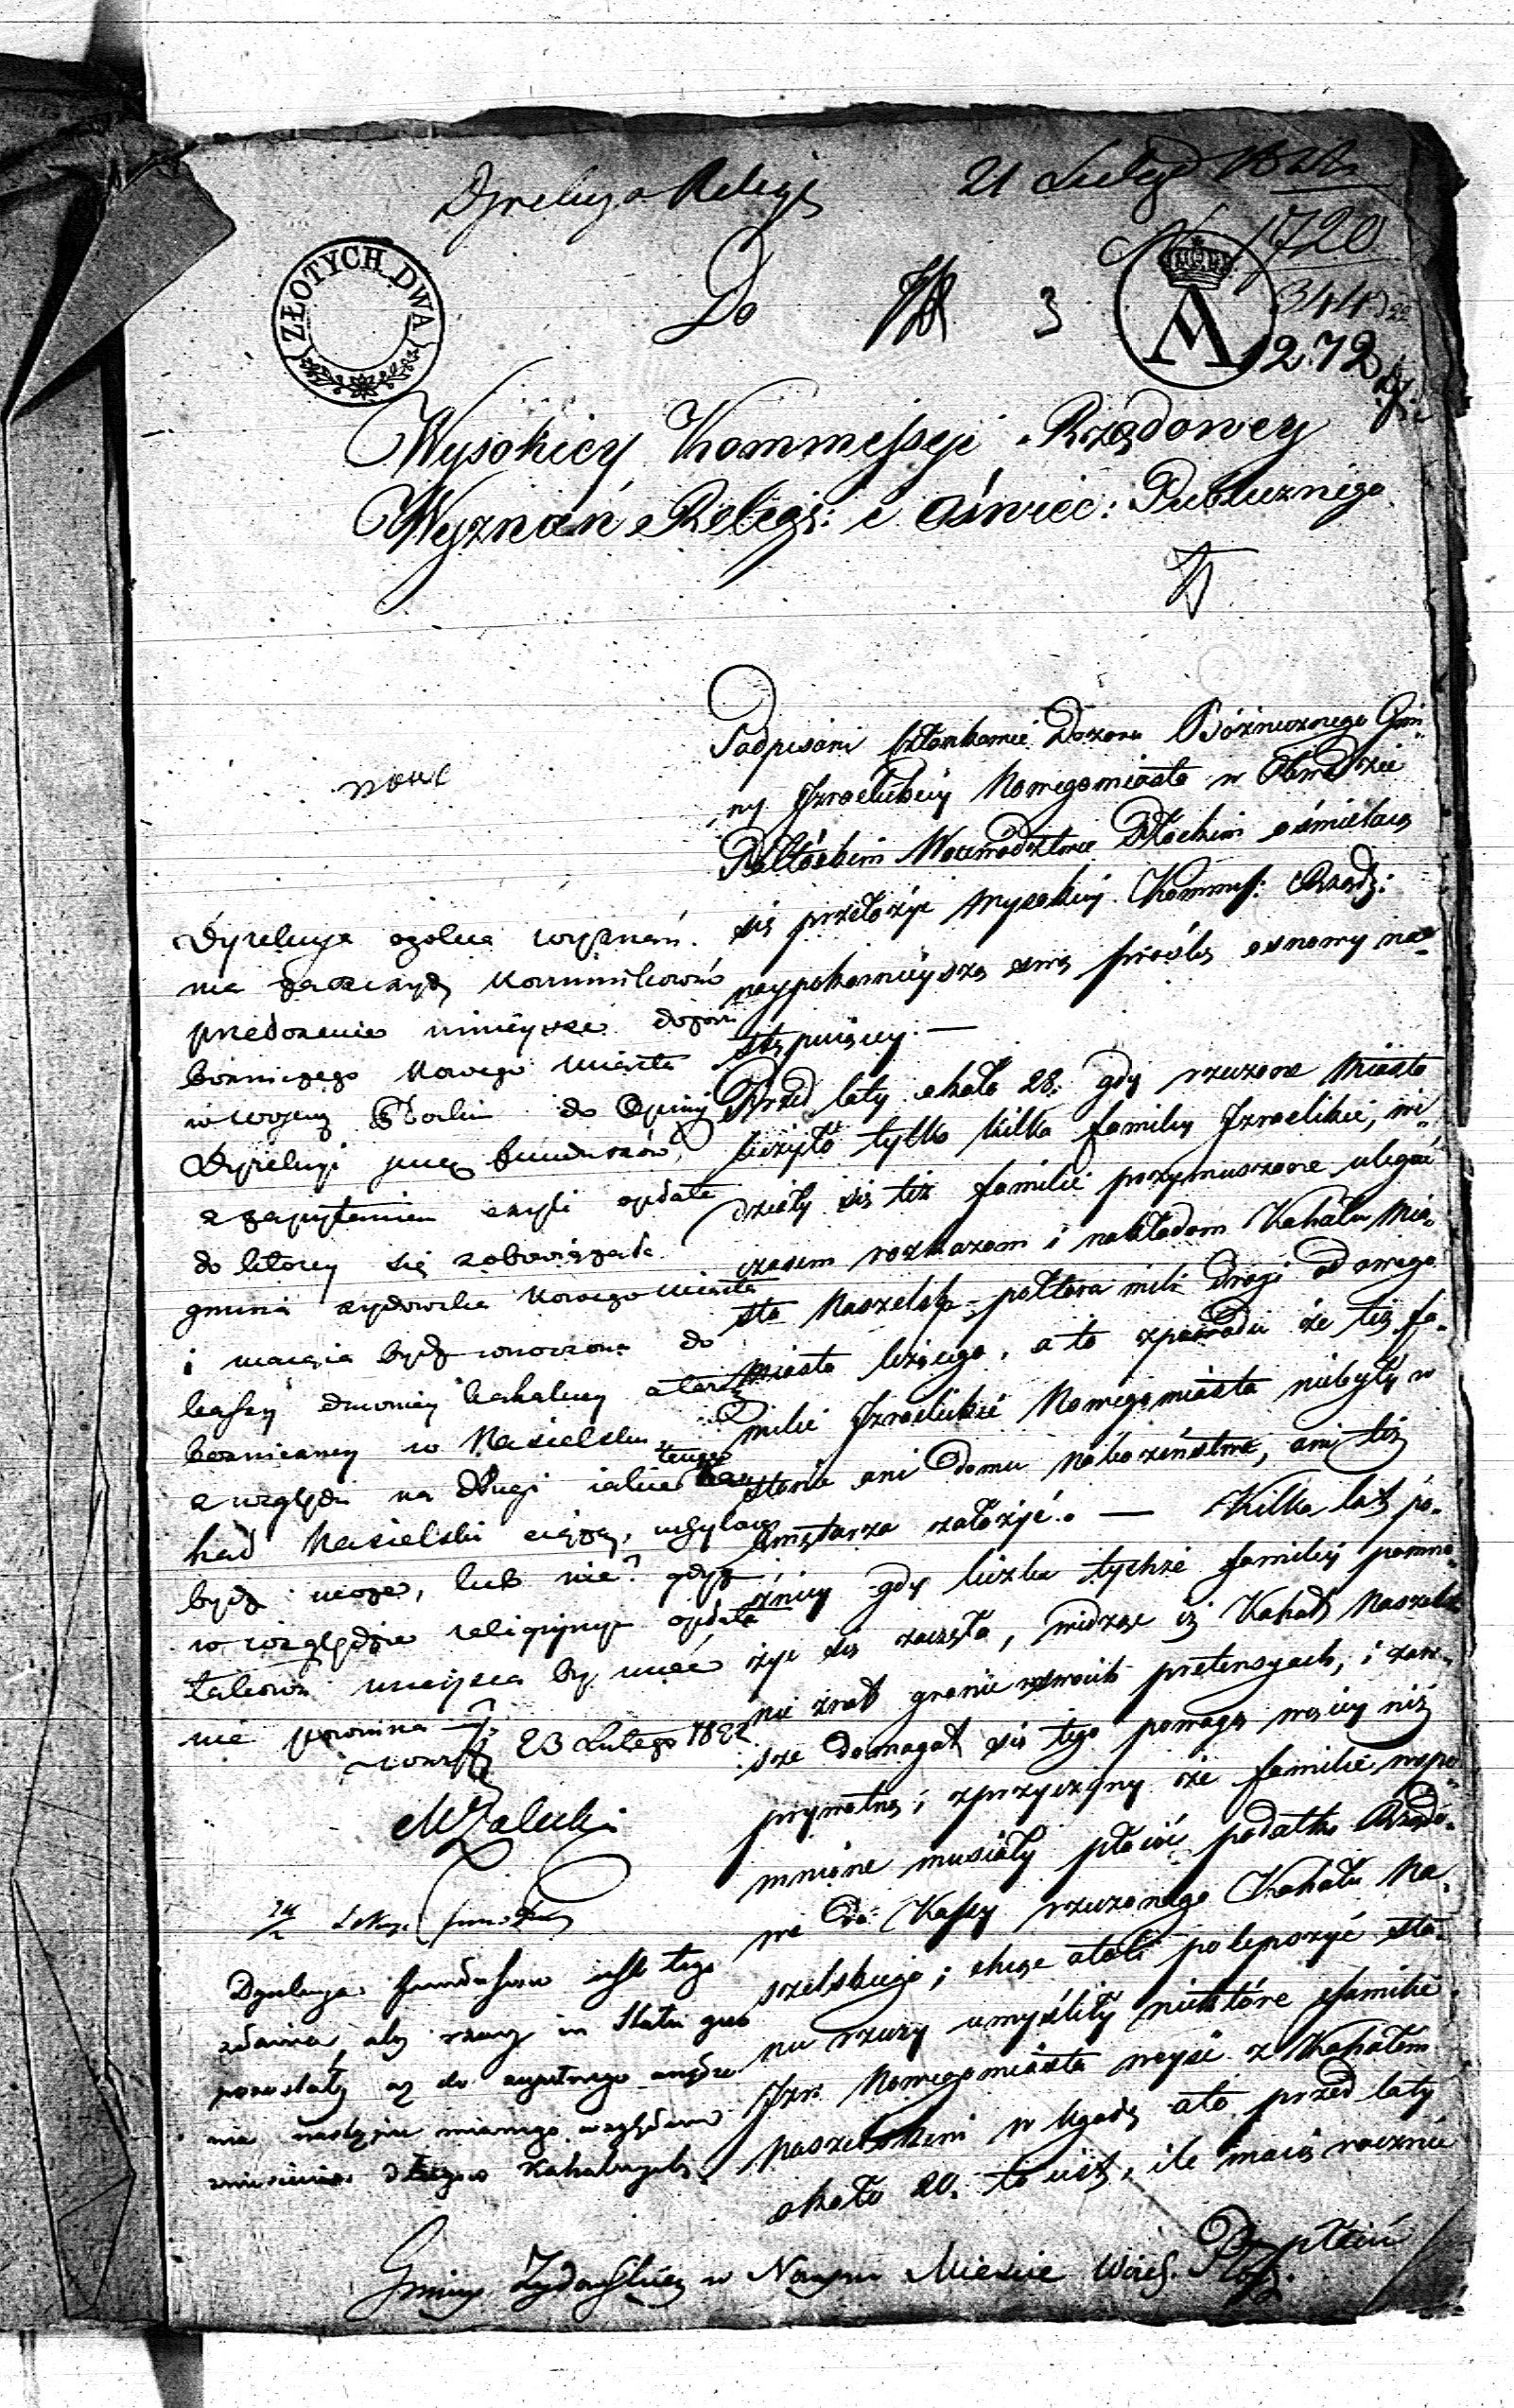 Dyrekcya Religij 21 Lutego 1822
N 1720
ZŁOTYCH DWA
Do
3
A
344
1272
Wysokiey Kommissyi Rządowey
Wyznań Religi: i Oświec: Publicznego
Podpisani Członkowie Dozoru Bóźnicznego Gmi-
ny Izraelickiey Nowegomiasta w Obwodzie
Pułtuskim Woiewodztwie Płockim ośmielaią
się przełożyć Wysokiey Kommiss: Rządz:
naypokornieyszą swą prośbę osnowy na-
stępuiącey. —
Przed laty około 28. gdy rzeczone Miasto
liczyło tylko kilka familiy Izraelickie, wi-
działy się też familie przymuszone ulegać
czasem rozkazom i nakładom Kahału Mia-
sta Naszelska, półtora mili drogi od owego
Miasta leżącego, a to zpowodu że też fa-
milie Izraelickie Nowegomiasta niebyły w
stanie ani Domu Nabożeństwa, ani też
Cmętarza założyć. — Kilka lat pó-
źniey gdy liczba tychże familiy pomno-
żyć się zaczęła, widząc iż Kahał Naszelsk
nie znał granic w swoich pretensyach, i zaw-
sze domagał się tego powagą więcey niż
prywatną, i zprzyczyny że familie wspo-
mnione musiały płacić podatki Rządo-
we do Kassy rzeczonego Kahału Na-
szelskiego; chcąc atoli polepszyć sta-
nu rzeczy umyśliły niektóre familie
Izr: Nowegomiasta weyść z Kahałem
Naszelskim w Ugodę ato przed laty
około 20. to iest, ile maią rocznie
płacić
nowe
Dyrekcya ogolna wyznań
ma zaszczyt kommunikować
przedożenie ninieysze dozoru
bożniczego Nowego Miasta
w Wojew Płockim do Opinij
Dyrekcyi jney funduszów,
z zapytaniem czyli opłata
do ktorey się zobowiązała
gmina żydowska Nowego Miasta
i maiąca bydź wnoszona do
kassy dawniey kahalney a teraz
bożniczney w Nasielsku,
z względu na długi iakie tenże
kahał Nasielski ciążą, uchyloną
bydź może, lub nie? gdyż
w względzie religijnym opłata
takowa mieysca by mieć
nie powinna
23 Lutego 1822
MZaleski
Dyrekcya funduszow iest tego
zdania, aby rzecz in Statu quo
pozostała aż do zupełnego urządze
nia nastąpić mianego względem
zniesienia długow Kahalnych.
Gminy Żydowskiey w Nowym Mieście Woiew. Płoc.